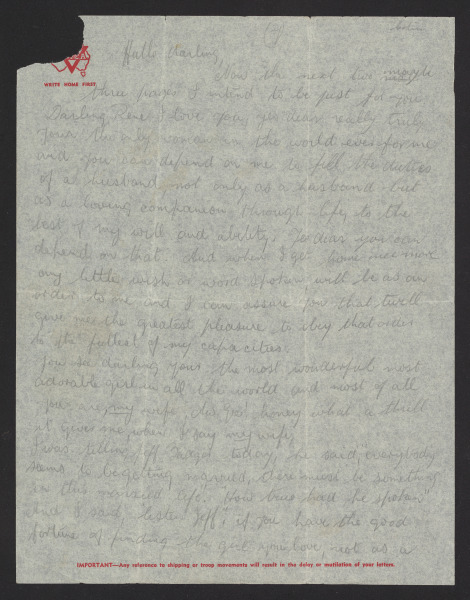 Hullo Darling,
WRITE HOME FIRST
Now the next two maybe
three pages I intend to be just for you
Darling I love you, yes dear really truly
Your the only woman in the world ever for me
and you can depend on me to the duties
of a husband, not only as a husband but
as a loving companion through life, to the
best of my will and ability. Yes dear you can
depend on that. And when I get home
any little wish or word spoken will be as an
order to me and I can assure you that twill
give me the greatest pleasure to obey that order
to the fullest of my capacities.
You see darling your the most wonderful most
adorable girl in all the world and most of all
you are my wife. honey what a thrill
it gives me when I say my wife
I was telling Jeff today, he said, "everybody
seems to be getting married, there must be something
in this married life." How true had he spoken"
and I said, listen "Jeff", if you have the good
fortune of finding the girl you love, not as a
IMPORTANT—Any reference to shipping or troop movements will result in the delay or mutilation of your letters.